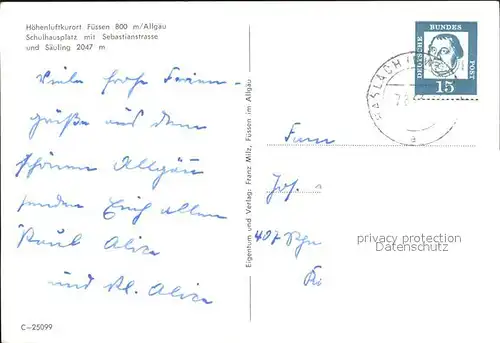 Höhenluftkurort Füssen 800 m/Allgäu
Schulhausplatz mit Sebastianstrasse
und Säuling 2047 m
Viele frohe Ferien-
grüße aus dem
schönen Allgäu
senden Euch allen
Paul Alice
und Kl. Alice
C-25099
Eigentum und Verlag: Franz Milz, Füssen im Allgäu
DEUTSCHE BUNDES POST
15
HASLACH
a
Fam
Jos.
407
privacy protection
Datenschutz